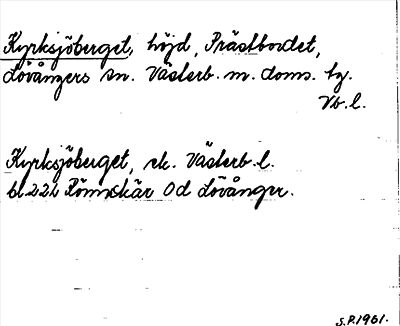 Kyrksjöberget, höjd, Prästbordet,
Lövångers sn. Västerb. m. doms. tg.
Vb. l.
Kyrksjöberget, ek. Västerb. l.
bl 222 Rönnskär Od Lövånger.
S.P. 1961.